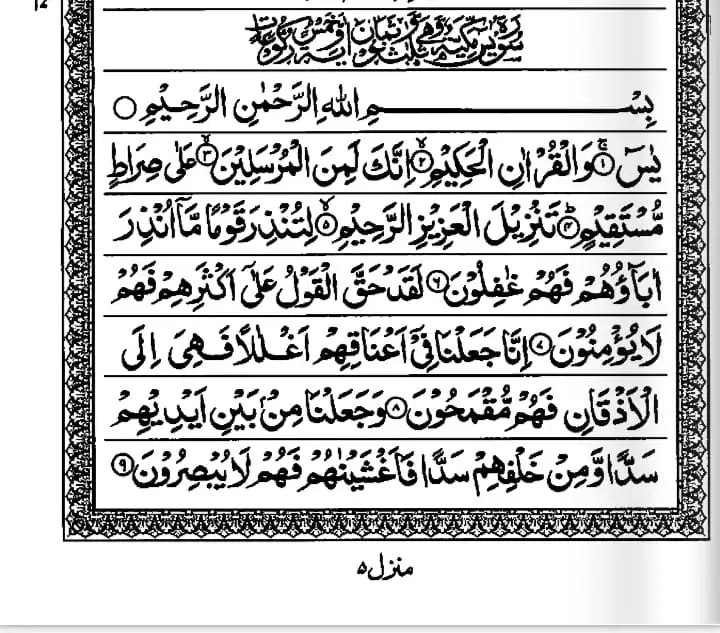 سُوْرَةُ يٰسٓ مَكِّيَّةٌ وَّهِيَ ثَلٰثٌ وَّثَمَانُوْنَ اٰيَةً وَّخَمْسُ رُكُوْعَاتٍ
بِسْمِ اللّٰهِ الرَّحْمٰنِ الرَّحِيْمِ ○
يٰسٓ ۚ﴿۱﴾ وَالْقُرْاٰنِ الْحَكِيْمِ ۙ﴿۲﴾ اِنَّكَ لَمِنَ الْمُرْسَلِيْنَ ۙ﴿۳﴾ عَلٰى صِرَاطٍ
مُّسْتَقِيْمٍ ؕ﴿۴﴾ تَنْزِيْلَ الْعَزِيْزِ الرَّحِيْمِ ۙ﴿۵﴾ لِتُنْذِرَ قَوْمًا مَّاۤ اُنْذِرَ
اٰبَآؤُهُمْ فَهُمْ غٰفِلُوْنَ ﴿۶﴾ لَقَدْ حَقَّ الْقَوْلُ عَلٰۤى اَكْثَرِهِمْ فَهُمْ
لَا يُؤْمِنُوْنَ ﴿۷﴾ اِنَّا جَعَلْنَا فِيْۤ اَعْنَاقِهِمْ اَغْلٰلًا فَهِيَ اِلَى
الْاَذْقَانِ فَهُمْ مُّقْمَحُوْنَ ﴿۸﴾ وَجَعَلْنَا مِنْۢ بَيْنِ اَيْدِيْهِمْ
سَدًّا وَّمِنْ خَلْفِهِمْ سَدًّا فَاَغْشَيْنٰهُمْ فَهُمْ لَا يُبْصِرُوْنَ ﴿۹﴾
منزل ۵